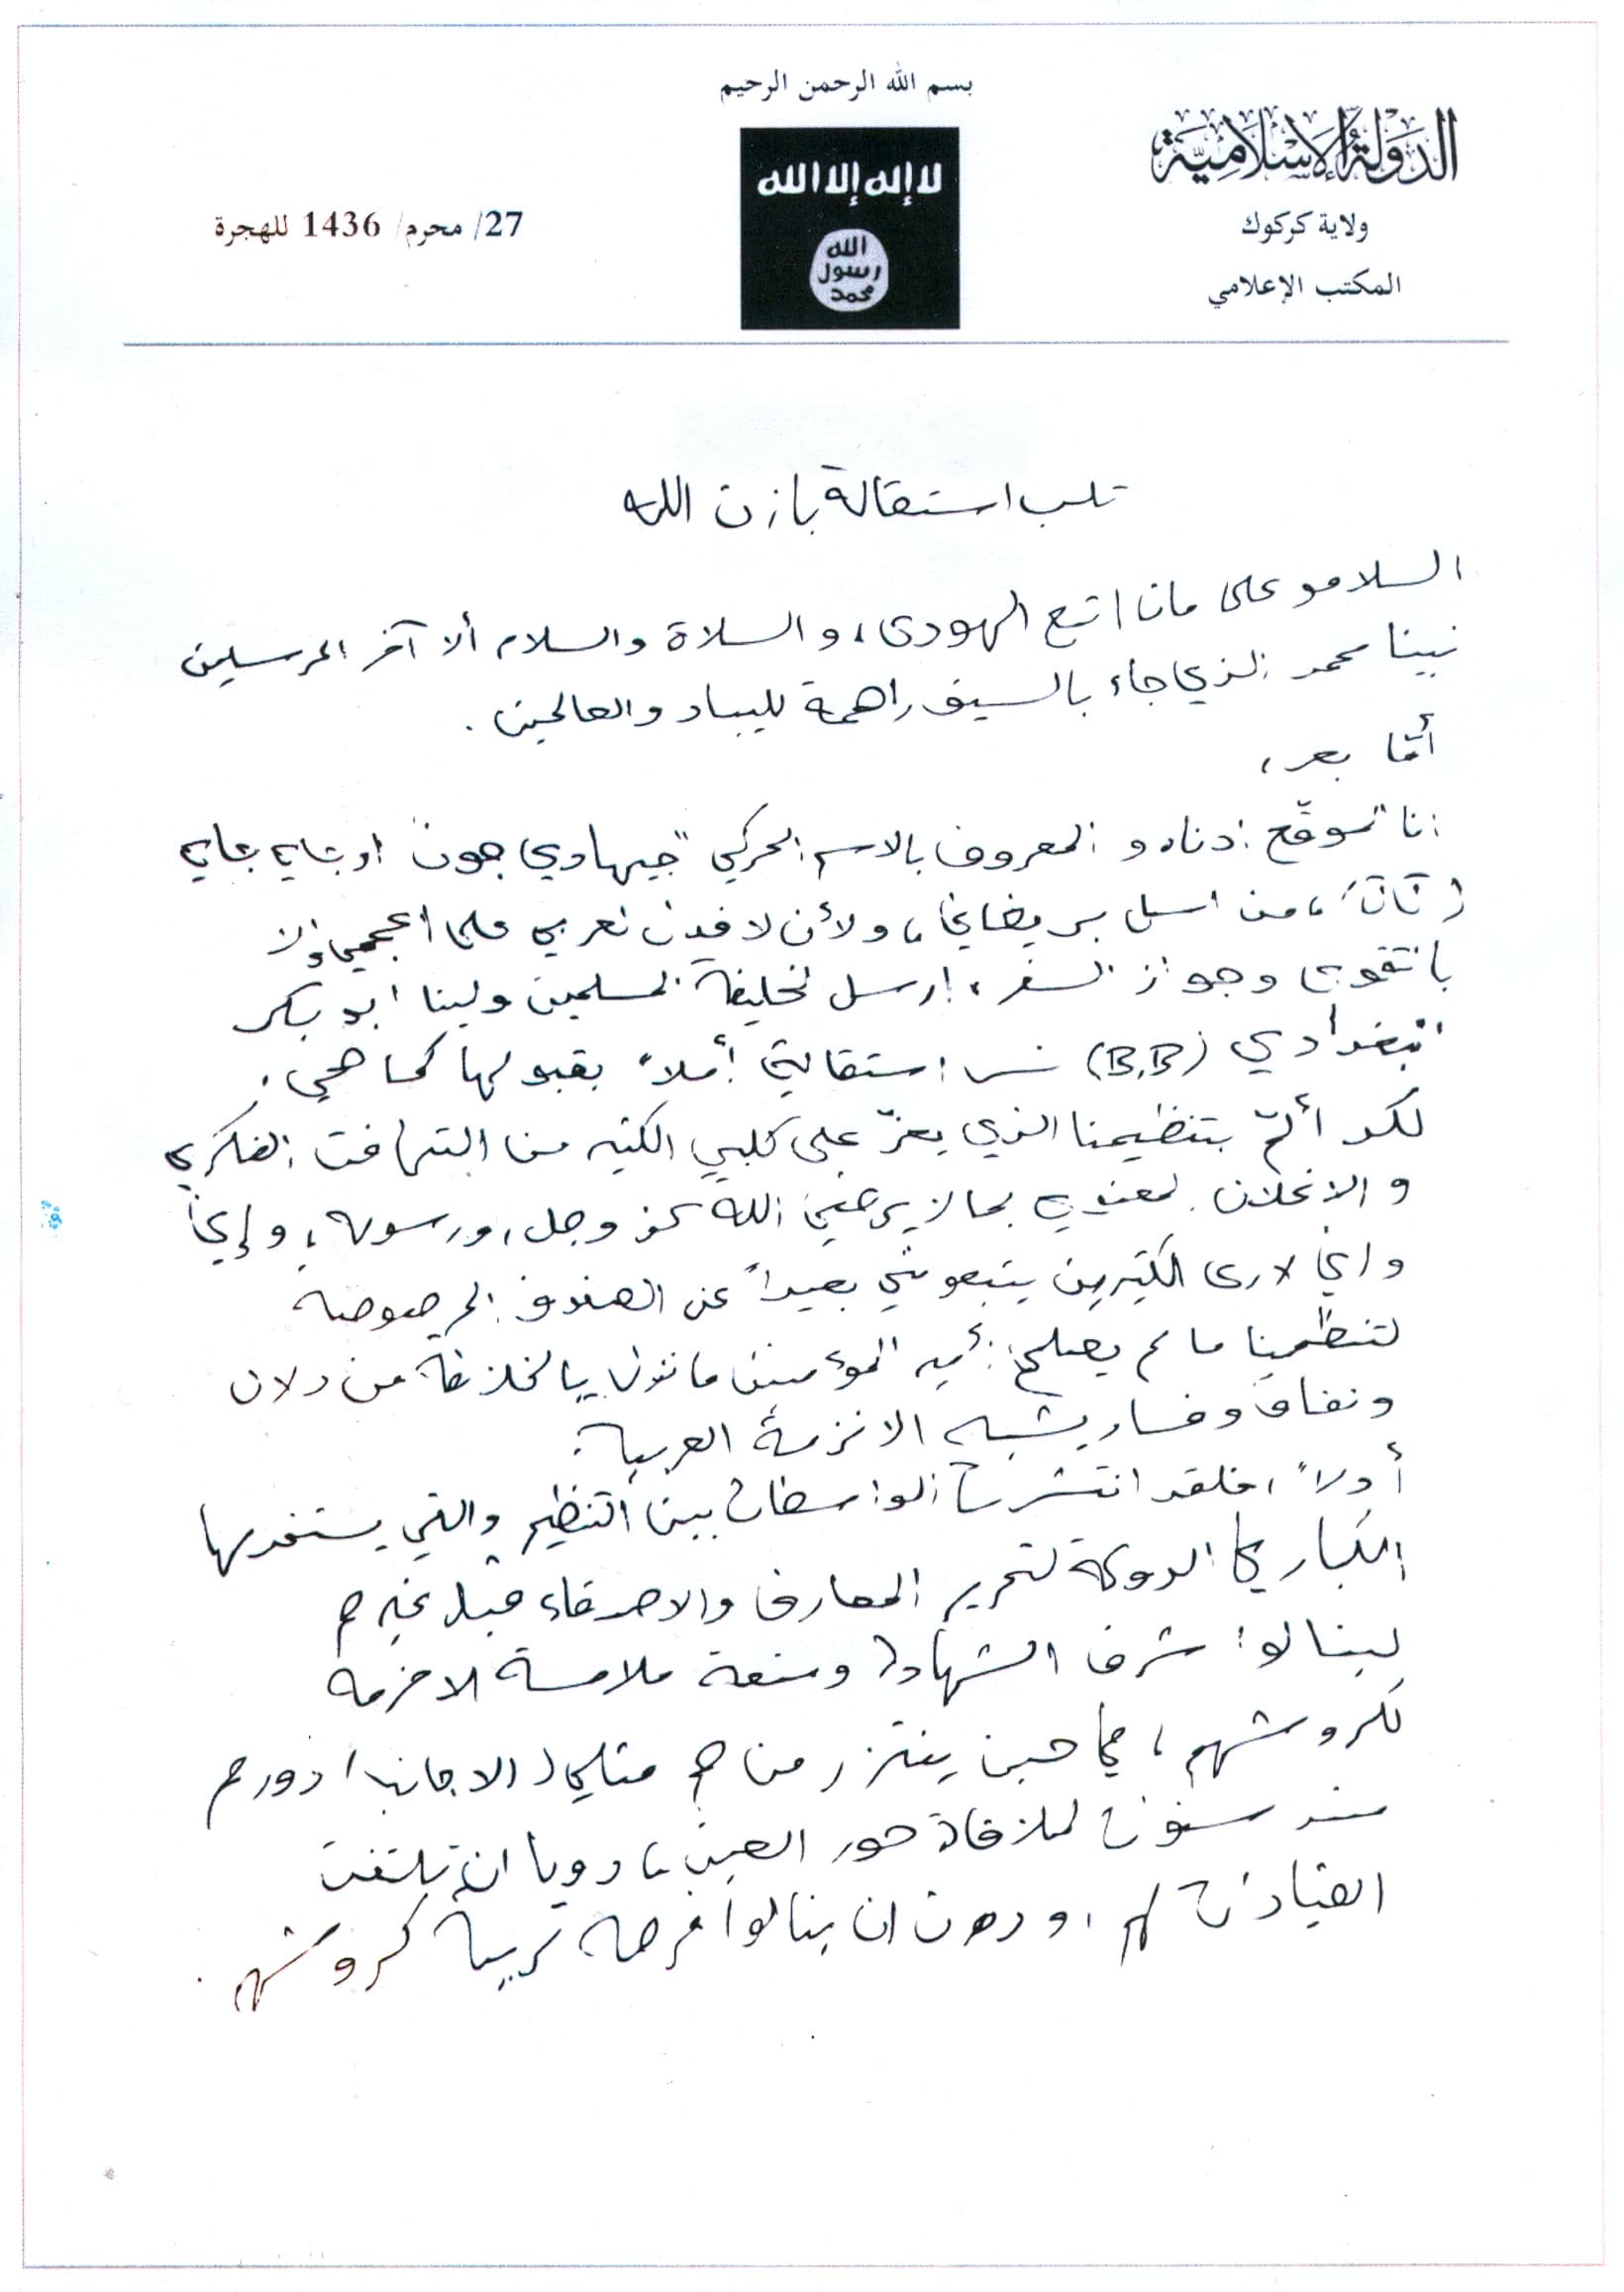 بسم الله الرحمن الرحيم
الدولة الإسلامية
ولاية كركوك
المكتب الإعلامي
27/ محرم/ 1436 للهجرة
لا إله إلا الله
الله
رسول
محمد
تلب استقالة بازن الله
السلامو على مان اتبع الهودى، والسلاة والسلام ألا آخر المرسلين
نبينا محمد الذي جاء بالسيف راهمة لليباد والعالمين.
أمّا بعد،
انا الموقّع ادناه والمعروف بالاسم الحركي "جيهادي جون اوبتاي بتاي
تاتا"، من اسل بريطاني، ولأن لا فرق لعربي على اعجمي إلا
بالتقوى وجواز السفر، ارسل لخليفة المسلمين ولينا ابو بكر
البغدادي (B.B) نس استقالتي أملاً بقبولها كما هي.
لكد ألمّ بتنظيمنا الذي يعزّ على كلبي الكثير من التهافت الفكري
والانحلال المعنوي بما لا يرضي الله عز وجل ورسوله، وإني
واني لارى الكثيرين يتبعوني بعيداً عن الصفوف المرصوصة
لتنظيمنا ما لم يصلح أمير المؤمنين ما نزل بالخلافة من دلال
ونفاق وفساد يشبه الانزمة العربية.
أولاً، فلقد انتشرت الواسطات بين التنظيم والتي يستخدمها
الكبار في الدولة لتمرير المعارف والاصدقاء قبل غيرهم
لينالوا شرف الشهادة ومتعة ملامسة الاحزمة
لكروشهم، في حين ينتزر من هم مثلي (الاجانب) دورهم
منذ سنوات لملاقاة حور العين، دونا ان تلتفت
القيادات لهم، ودون ان ينالوا فرصة تربية كروشهم.